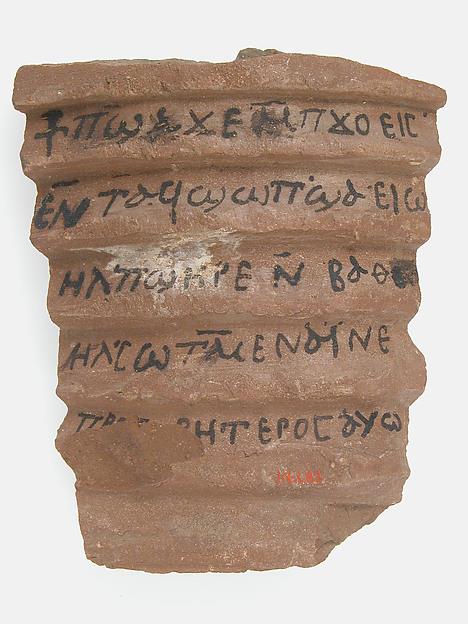 ⳁ ⲡϣⲁϫⲉ ⲙ̄ⲡϫⲟⲉⲓⲥ
ⲉⲛ̄ⲧⲁϥϣⲱⲡ ϣⲁ ⲉⲓⲱ
ⲏⲗ ⲡϣⲏⲣⲉ ⲛ̄ⲃⲁⲑ
ⲏⲗ ⲥⲱⲧⲙ̄ ⲉⲛⲁⲓ ⲛⲉ
ⲏⲧⲉⲣⲟⲥ ⲁⲩⲱ